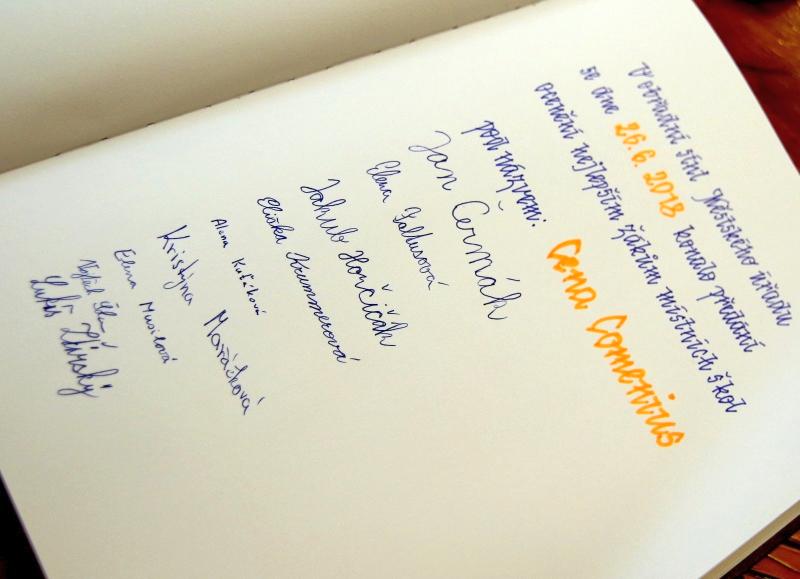 V obřadní síni Městského úřadu
se dne 26.6.2018 konalo předání
ocenění nejlepším žákům místních škol
pod názvem:
Cena Comenius
Jan Čermák
Elena Saltusová
Jakub Horčičák
Eliška Krummerová
Alena Kuťáková
Kristýna Mařáčková
Elena Musilová
Vojtěch
Lukáš Žďárský